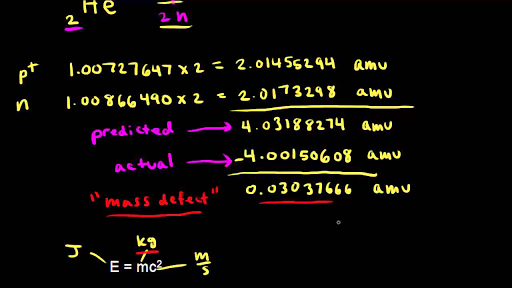 2He
2n
p+ 1.00727647 x 2 = 2.01455294 amu
n 1.00866490 x 2 = 2.0173298 amu
predicted → 4.03188274 amu
actual → -4.00150608 amu
"mass defect" 0.03037666 amu
J kg m/s
E = mc²